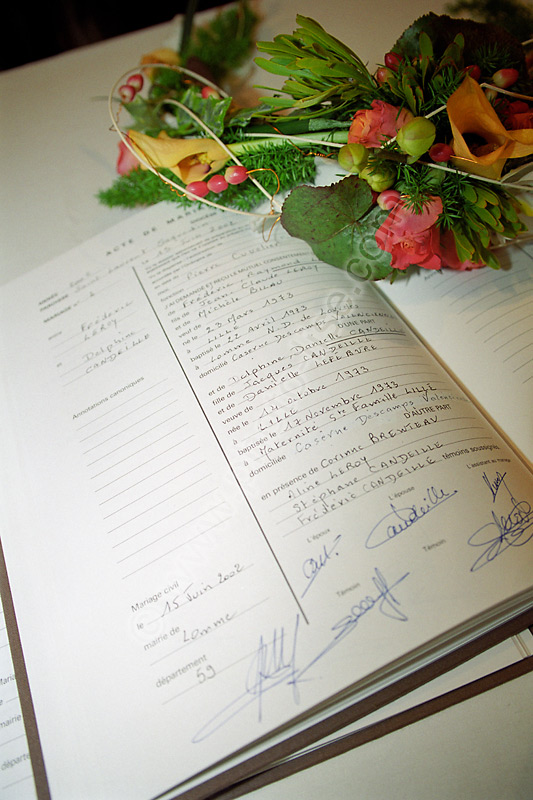 ACTE DE
ANNÉE 2002
PAROISSE Saint Laurent
MARIAGE n°
entre Frédéric
LEROY
et Delphine
CANDEILLE
Annotations canoniques
Mariage civil
le 15 Juin 2002
mairie de
Lomme
département
59
Pierre
de Frédéric Raymond
fils de Jean Claude LEROY
et de Michèle
né le 23 Mars 1973
à LILLE
baptisé le 22 Avril 1973
à Lomme N.D. de Lourdes
domicilié Caserne Descamps VALENCIENNES
D'UNE PART
et de Delphine, Danielle CANDEILLE
fille de Jacques CANDEILLE
et de Danielle LEFEBVRE
veuve de
née le 14 octobre 1973
à LILLE
baptisée le 17 Novembre 1973
à Maternité Ste Famille LILLE
domiciliée Caserne Descamps
D'AUTRE PART
en présence de Corinne
Aline LEROY
Stéphane CANDEILLE
Frédéric CANDEILLE témoins soussignés.
L'époux L'épouse L'assistant au mariage
Candeille
Témoin Témoin
mairie
départe